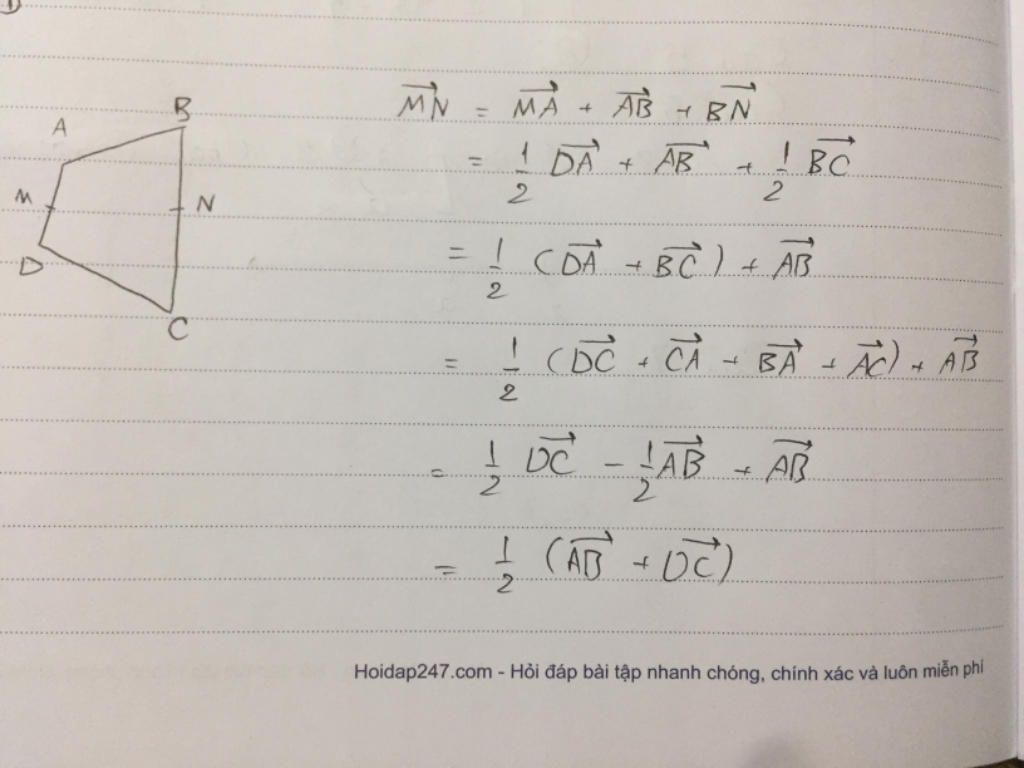 1
A
B
M
N
D
C
$\overrightarrow{MN} = \overrightarrow{MA} + \overrightarrow{AB} + \overrightarrow{BN}$
$= \frac{1}{2} \overrightarrow{DA} + \overrightarrow{AB} + \frac{1}{2} \overrightarrow{BC}$
$= \frac{1}{2} (\overrightarrow{DA} + \overrightarrow{BC}) + \overrightarrow{AB}$
$= \frac{1}{2} (\overrightarrow{DC} + \overrightarrow{CA} + \overrightarrow{BA} + \overrightarrow{AC}) + \overrightarrow{AB}$
$= \frac{1}{2} \overrightarrow{DC} - \frac{1}{2} \overrightarrow{AB} + \overrightarrow{AB}$
$= \frac{1}{2} (\overrightarrow{AB} + \overrightarrow{DC})$
Hoidap247.com - Hỏi đáp bài tập nhanh chóng, chính xác và luôn miễn phí